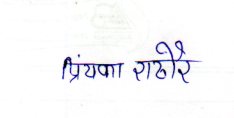 प्रियंका राठौरे